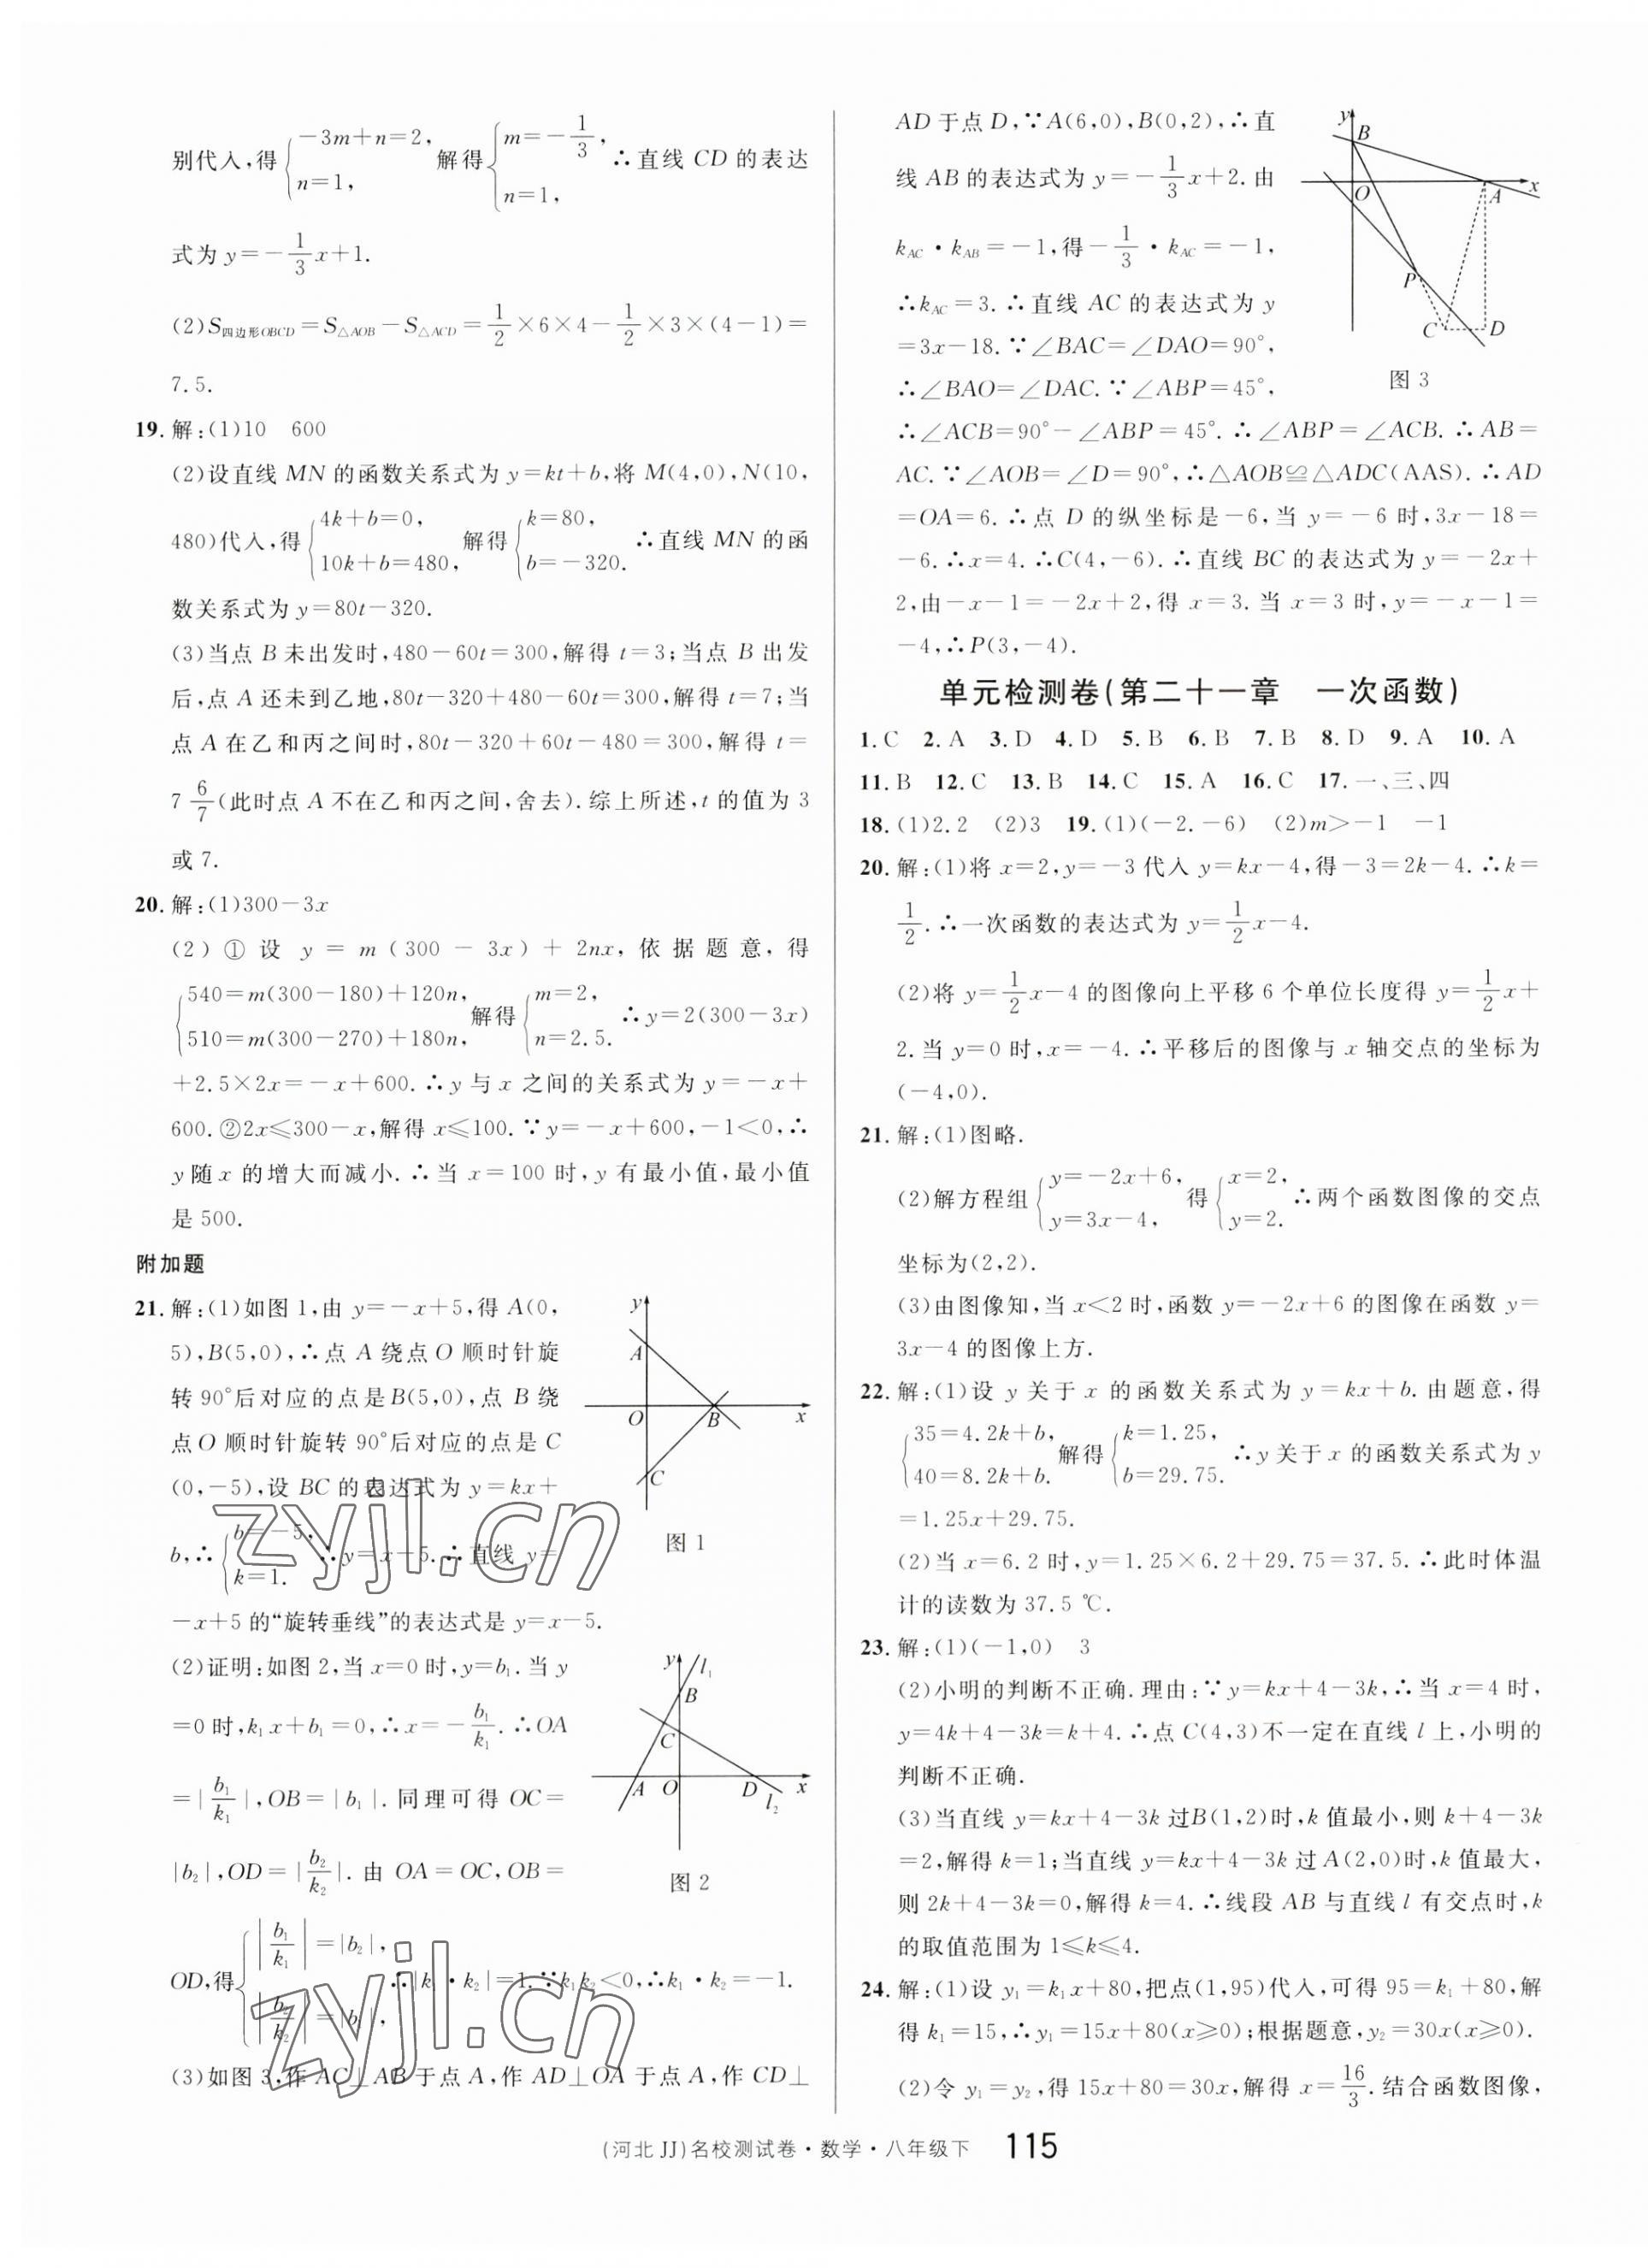 别代入,得{-3m+n=2, n=1, 解得{m=-1/3, n=1, ∴直线 CD 的表达
式为 y=-1/3x+1.
(2)S四边形OBCD=S△AOB-S△ACD=1/2×6×4-1/2×3×(4-1)=
7.5.
19. 解:(1)10 600
(2)设直线 MN 的函数关系式为 y=kt+b,将 M(4,0),N(10,
480)代入,得{4k+b=0, 10k+b=480, 解得{k=80, b=-320. ∴直线 MN 的函
数关系式为 y=80t-320.
(3)当点 B 未出发时,480-60t=300,解得 t=3;当点 B 出发
后,点 A 还未到乙地,80t-320+480-60t=300,解得 t=7;当
点 A 在乙和丙之间时,80t-320+60t-480=300,解得 t=
7 6/7(此时点 A 不在乙和丙之间,舍去).综上所述,t 的值为 3
或 7.
20. 解:(1)300-3x
(2)①设 y=m(300-3x)+2nx,依据题意,得
{540=m(300-180)+120n, 510=m(300-270)+180n, 解得{m=2, n=2.5. ∴y=2(300-3x)
+2.5×2x=-x+600.∴y 与 x 之间的关系式为 y=-x+
600.②2x≤300-x,解得 x≤100.∵y=-x+600,-1<0,∴
y随 x 的增大而减小.∴当 x=100 时,y 有最小值,最小值
是 500.
附加题
21. 解:(1)如图 1,由 y=-x+5,得 A(0,
5),B(5,0),∴点 A 绕点 O 顺时针旋
转 90°后对应的点是B(5,0),点 B 绕
点 O 顺时针旋转 90°后对应的点是 C
(0,-5),设 BC 的表达式为 y=kx+
b,∴{b=-5, k=1. ∴y=x-5.∴直线 y=
-x+5 的“旋转垂线”的表达式是 y=x-5.
y
A
O
B
x
C
图 1
(2)证明:如图 2,当 x=0 时,y=b₁.当 y
=0 时,k₁x+b₁=0,∴x=-b₁/k₁.∴OA
=|b₁/k₁|,OB=|b₁|.同理可得 OC=
|b₂|,OD=|b₂/k₂|.由 OA=OC,OB=
OD,得{|b₁/k₁|=|b₂|, |b₂/k₂|=|b₁|, ∴|k₁·k₂|=1.∵k₁k₂<0,∴k₁·k₂=-1.
y
l₁
B
C
A
O
D
x
l₂
图 2
(3)如图 3,作 AC⊥AB 于点 A,作 AD⊥OA 于点 A,作 CD⊥
AD 于点 D,∵A(6,0),B(0,2),∴直
线 AB 的表达式为 y=-1/3x+2.由
kAC·kAB=-1,得-1/3·kAC=-1,
∴kAC=3.∴直线 AC 的表达式为 y
=3x-18.∵∠BAC=∠DAO=90°,
∴∠BAO=∠DAC.∵∠ABP=45°,
∴∠ACB=90°-∠ABP=45°.∴∠ABP=∠ACB.∴AB=
AC.∵∠AOB=∠D=90°,∴△AOB≌△ADC(AAS).∴AD
=OA=6.∴点 D 的纵坐标是-6,当 y=-6 时,3x-18=
-6.∴x=4.∴C(4,-6).∴直线 BC 的表达式为 y=-2x+
2,由-x-1=-2x+2,得 x=3.当 x=3 时,y=-x-1=
-4,∴P(3,-4).
y
B
O
A
x
P
C
D
图 3
单元检测卷(第二十一章 一次函数)
1. C 2. A 3. D 4. D 5. B 6. B 7. B 8. D 9. A 10. A
11. B 12. C 13. B 14. C 15. A 16. C 17. 一、三、四
18. (1)2.2 (2)3 19. (1)(-2.-6) (2)m>-1 -1
20. 解:(1)将 x=2,y=-3 代入 y=kx-4,得-3=2k-4.∴k=
1/2.∴一次函数的表达式为 y=1/2x-4.
(2)将 y=1/2x-4 的图像向上平移 6 个单位长度得 y=1/2x+
2.当 y=0 时,x=-4.∴平移后的图像与 x 轴交点的坐标为
(-4,0).
21. 解:(1)图略.
(2)解方程组{y=-2x+6, y=3x-4, 得{x=2, y=2. ∴两个函数图像的交点
坐标为(2,2).
(3)由图像知,当 x<2 时,函数 y=-2x+6 的图像在函数 y=
3x-4 的图像上方.
22. 解:(1)设 y 关于 x 的函数关系式为 y=kx+b.由题意,得
{35=4.2k+b, 40=8.2k+b. 解得{k=1.25, b=29.75. ∴y 关于 x 的函数关系式为 y
=1.25x+29.75.
(2)当 x=6.2 时,y=1.25×6.2+29.75=37.5.∴此时体温
计的读数为 37.5 ℃.
23. 解:(1)(-1,0) 3
(2)小明的判断不正确.理由:∵y=kx+4-3k,∴当 x=4 时,
y=4k+4-3k=k+4.∴点 C(4,3)不一定在直线 l 上,小明的
判断不正确.
(3)当直线 y=kx+4-3k 过B(1,2)时,k 值最小,则 k+4-3k
=2,解得 k=1;当直线 y=kx+4-3k 过 A(2,0)时,k 值最大,
则 2k+4-3k=0,解得 k=4.∴线段 AB 与直线 l 有交点时,k
的取值范围为 1≤k≤4.
24. 解:(1)设 y₁=k₁x+80,把点(1,95)代入,可得 95=k₁+80,解
得 k₁=15,∴y₁=15x+80(x≥0);根据题意,y₂=30x(x≥0).
(2)令 y₁=y₂,得 15x+80=30x,解得 x=16/3.结合函数图像,
(河北 JJ)名校测试卷·数学·八年级下 115
zyjl.cn
zyjl.cn